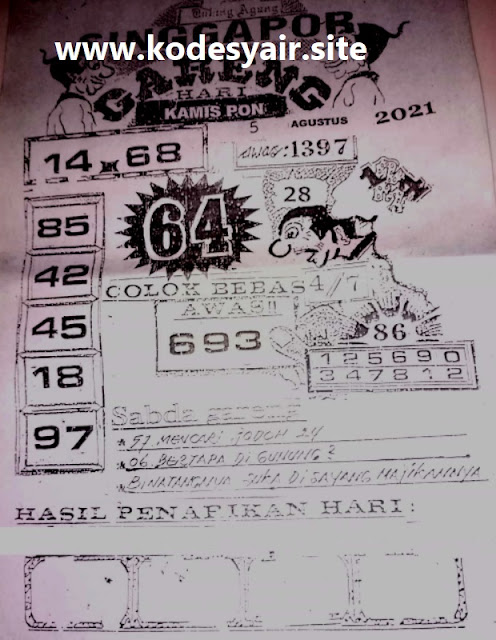 Tulung Agung
SINGGAPOR
www.kodesyair.site
GARENG
HARI
KAMIS PON
5 AGUSTUS 2021
14 x 68
AWAS:1397
85
64
28
42
COLOK BEBAS 4/7
AWAS!!
45
693
86
1 2 5 6 9 0
3 4 7 8 1 2
18
97
Sabda gareng
* 57. MENCARI JODOH 24
* 06. BERTAPA DI GUNUNG 2
* BINATANGNYA SUKA DI SAYANG MAJIKANNYA
HASIL PENAPIKAN HARI: